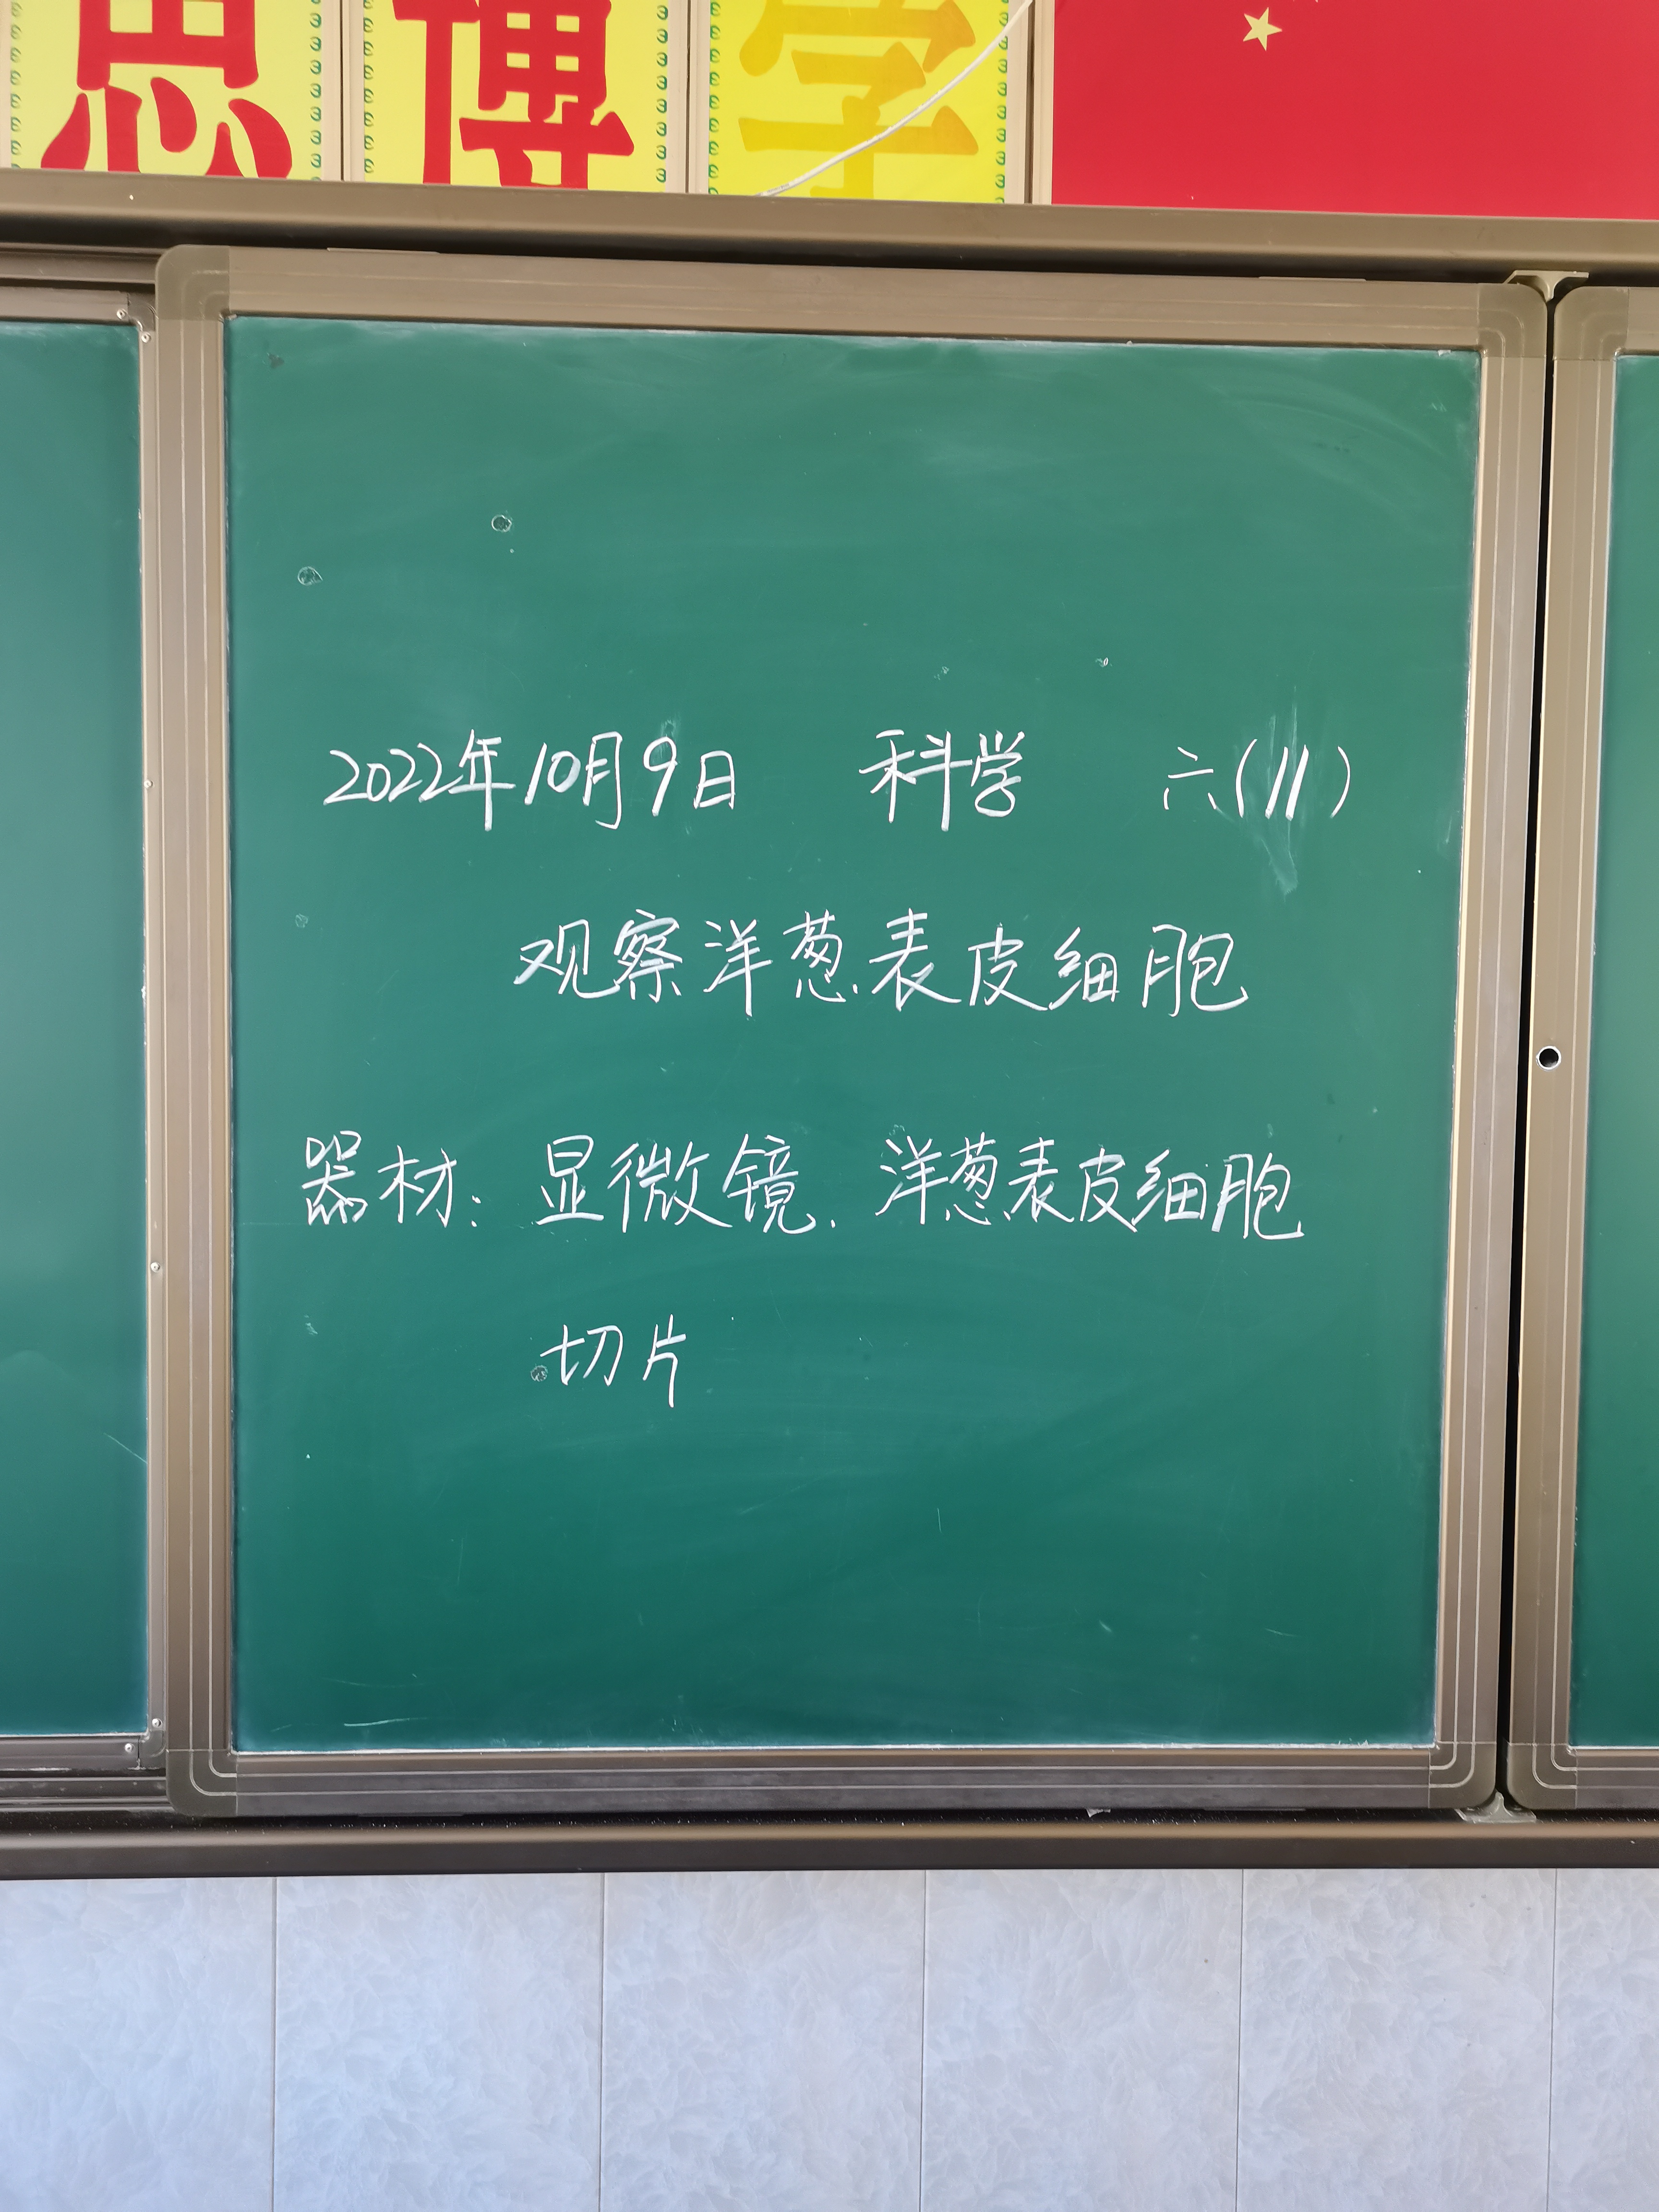 思博学
2022年10月9日 科学 六(11)
观察洋葱表皮细胞
器材：显微镜、洋葱表皮细胞
切片